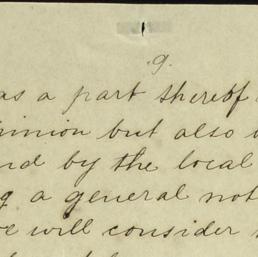 .9.
as a part thereof
inion but also
nd by the local
g a general not
we will consider